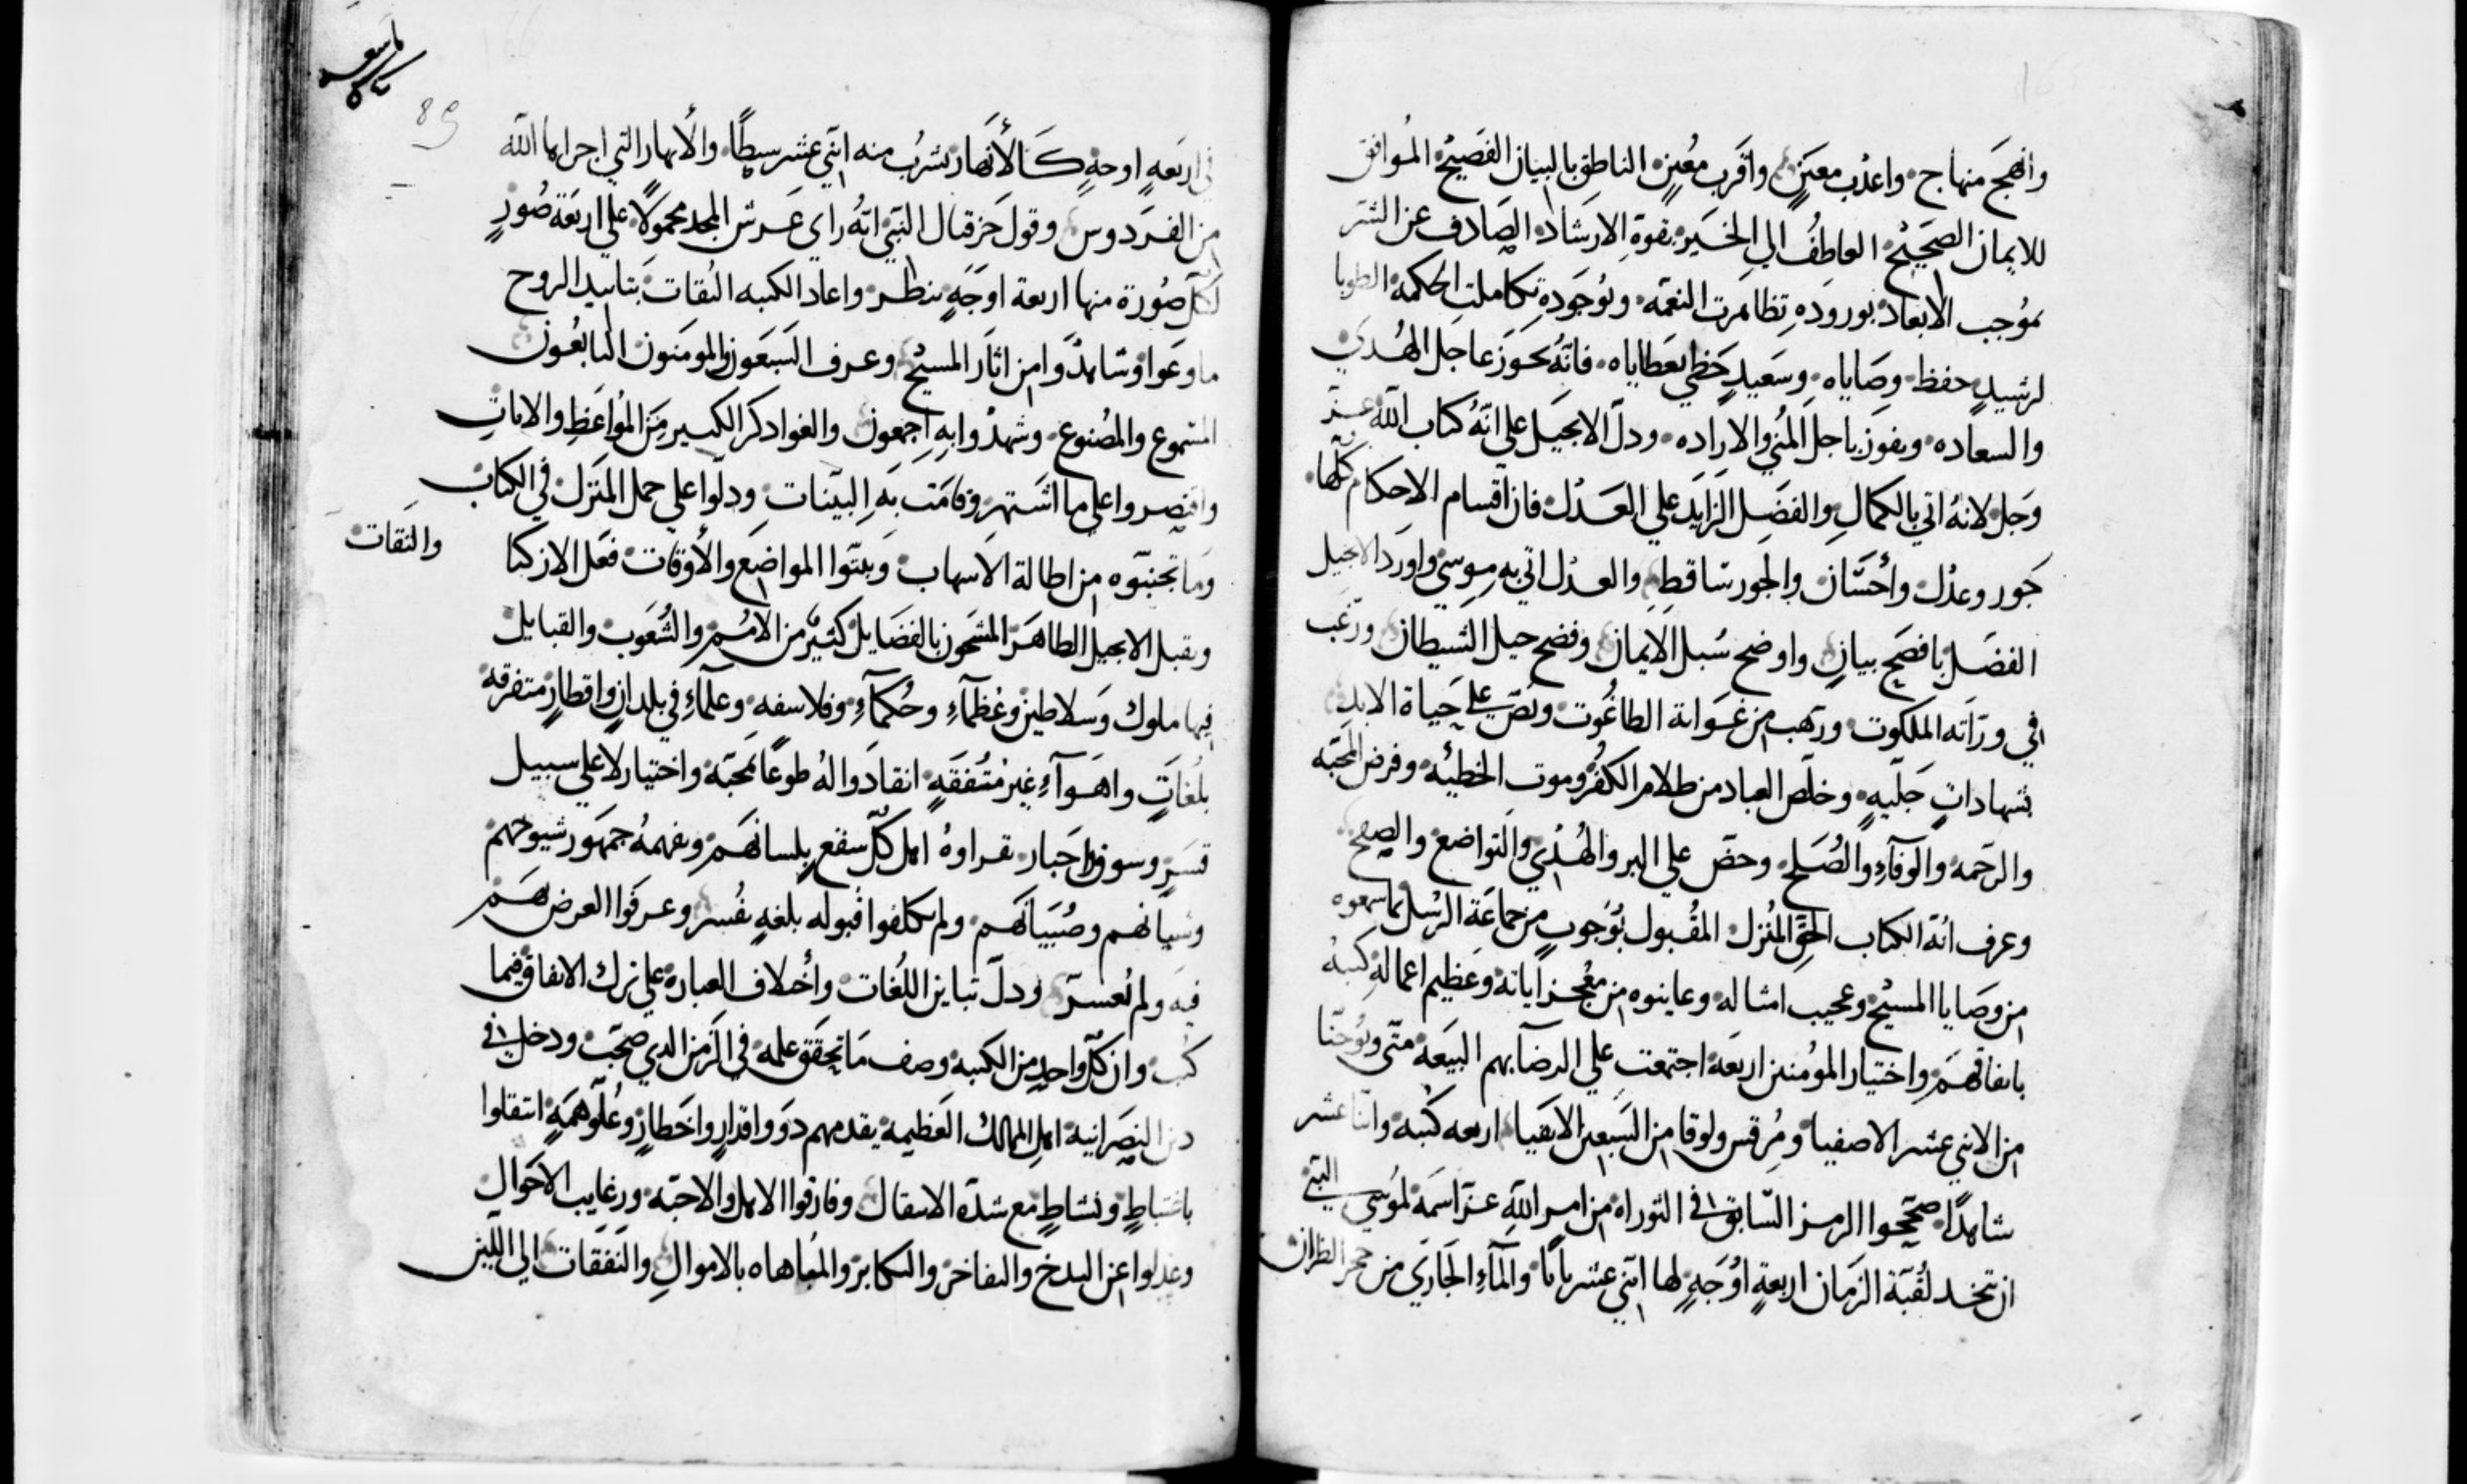 وانهج منهاج واعذب معين واقرب معين الناطق بالبيان الفصيح الموافق
للايمان الصحيح العاطف الي الخير بقوة الارشاد الصادف عن الشر
بموجب الابعاد بوروده تظاهرت النعمه وبوجوده تكاملت الحكمه الطوبا
لرشيد حفظ وصاياه وسعيد حظي بعطاياه فانه يحوز عاجل الهدي
والسعاده ويفوز باجل المني والاراده ودل الانجيل علي انه كتاب الله عز
وجل لانه اتي بالكمال والفضل الزايد علي العدل فان اقسام الاحكام كلها
جور وعدل واحسان والجور ساقط والعدل اتي به موسي واورد الانجيل
الفضل بافصح بيان واوضح سبل الايمان وفضح حيل الشيطان ورغب
في وراثه الملكوت ورهب من غواية الطاغوت ونص علي حياة الابد
بشهادات جليه وخلص العباد من ظلام الكفر وموت الخطئه وفرض المحبه
والرحمه والوفاء والصلح وحض علي البر والهدي والتواضع والصفح
وعرف انه الكتاب الحق المنزل المقبول بوجوب من جماعة الرسل بما سمعوه
من وصايا المسيح وعجيب امثاله وعاينوه من معجز اياته وعظيم اعماله كتبه
باتفاقهم واختيار المؤمنين اربعة اجتمعت علي الرضا بهم البيعه متي ويوحنا
من الاثني عشر الاصفيا ومرقس ولوقا من السبعين الاتقيا اربعه كتبه واثنا عشر
شاهدا صححوا الرمز السابق في التوراه من امر الله عز اسمه لموسي النبي
ان تتخد لقبة الزمان اربعة اوجه لها اثني عشر بابا والماء الجاري من حجر الظران
ناسعه
كاس
89
في اربعه اوجه كالانهار يشرب منه اثني عشر سبطا والانهار التي اجراها الله
من الفردوس وقول حزقيال النبي انه راي عرش المجد محمولا علي اربعة صور
لكل صورة منها اربعة اوجه ينظر واعاد الكتبه الثقات بتاييد الروح
ما وعوا وشاهدوا من اثار المسيح وعرف السبعون والمومنون التابعون
المسموع والمصنوع وشهدوا به اجمعون والغوا دكر الكثير من المواعظ والايات
واقتصروا علي ما اشتهر وقامت به البينات ودلوا علي حمل المنزل في الكتاب
وما تجنبوه من اطالة الاسهاب وبينوا المواضع والأوقات فعل الازكيا
والثقات
وتقبل الانجيل الطاهر المشحون بالفضايل كثير من الامم والشعوب والقبايل
فيها ملوك وسلاطين وعظماء وحكماء وفلاسفه وعلماء في بلدان واقطار متفرقه
بلغات واهواء غير متفقه انقادوا له طوعا بمحبة واختيار لا علي سبيل
قسر وسوق اجبار تقراوه اهل كل سقع بلسانهم ويفهمه جمهور شيوخهم
وشبانهم وصبيانهم ولم يكلفوا قبوله بلغه نفسر وعرفوا الغرض لهم
فيه ولم تعسر ودل تباين اللغات واختلاف العبارة علي ترك الاتفاق فيما
كتب وان كل واحد من الكتبه وصف ما تحقق علمه في الزمن الدي صحب ودخل في
دين النصرانية اهل الممالك العظيمه يقدمهم دوو اقدار واخطار وعلو همه انتقلوا
باغتباط ونشاط مع شدة الانتقال وفارقوا الاهل والاحبه ورغايب الاحوال
وعدلوا عن البدخ والتفاخر والتكابر والمباهاه بالاموال والنفقات الي اللين